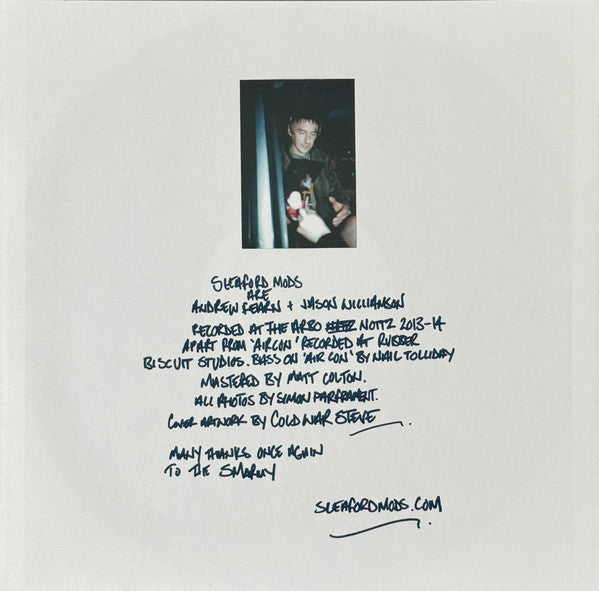 SLEAFORD MODS
ARE
ANDREW FEARN + JASON WILLIAMSON
RECORDED AT THE ARBO NOTTZ 2013-14
APART FROM 'AIRCON' RECORDED AT RUBBER
BISCUIT STUDIOS. BASS ON 'AIR CON' BY NAIL TOLLIDAY
MASTERED BY MATT COLTON.
ALL PHOTOS BY SIMON PARFREMENT.
COVER ARTWORK BY COLD WAR STEVE
MANY THANKS ONCE AGAIN
TO THE SMARMY
SLEAFORDMODS.COM